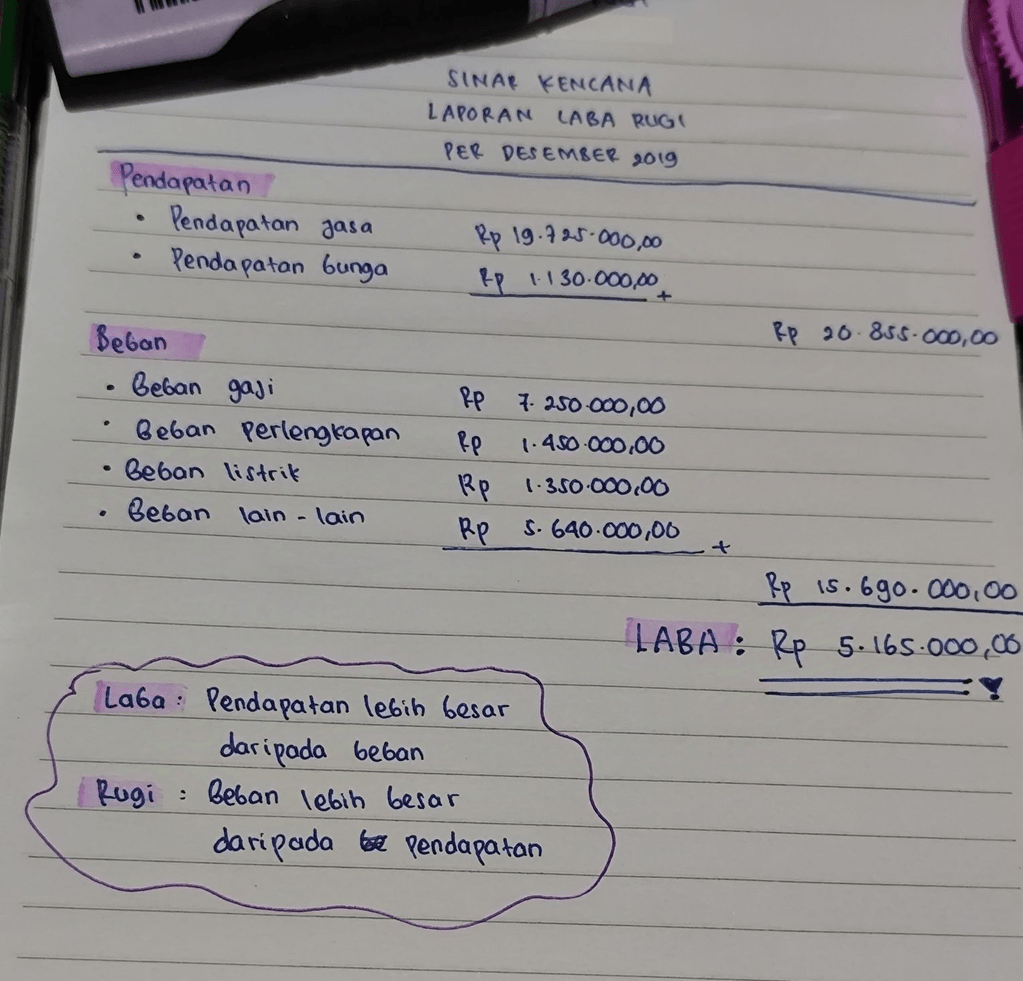 SINAR KENCANA
LAPORAN LABA RUGI
PER DESEMBER 2019
Pendapatan
• Pendapatan jasa Rp 19.725.000,00
• Pendapatan bunga Rp 1.130.000,00 +
Rp 20.855.000,00
Beban
• Beban gaji Rp 7.250.000,00
• Beban Perlengkapan Rp 1.450.000,00
• Beban listrik Rp 1.350.000,00
• Beban lain - lain Rp 5.640.000,00 +
Rp 15.690.000,00
LABA : Rp 5.165.000,00
Laba : Pendapatan lebih besar
daripada beban
Rugi : Beban lebih besar
daripada pendapatan